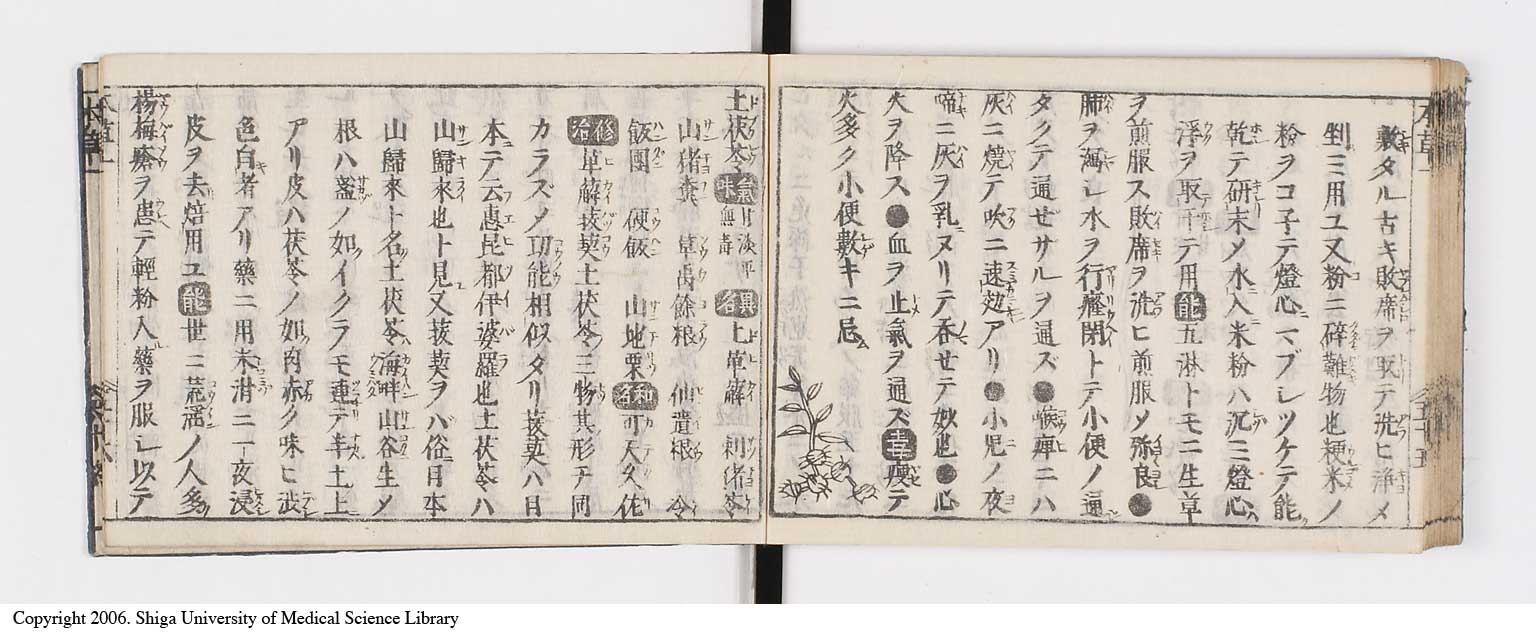 敷タル古キ敗席ヲ取テ洗ヒ浄メ
剉ミ用ユ又粉ニ碎難物也粳米ノ
粉ヲコ子テ燈心ニマブレツケテ能
乾テ研末メ水ニ入米粉ハ沉ミ燈心
浮ヲ取干テ用能五淋トモニ生草
ヲ煎服ス敗席ヲ洗ヒ煎服メ弥良●
肺ヲ瀉レ水ヲ行癃閉トテ小便ノ通
タクテ通ゼサルヲ通ズ●喉痺ニハ
灰ニ燒テ吹ニ速效アリ●小児ノ夜
啼ニ灰ヲ乳ヌリテ呑セテ妙也●心
火ヲ降ス●血ヲ止氣ヲ通ズ 瘦テ
火多ク小便數キニ忌
土茯苓 氣味 甘淡平無毒 異名 土萆薢 刺猪苓
山猪糞 草禹餘根 仙遺根 冷
飯團 硬飯 山地栗 和名 可天久佐
修治 萆薢菝葜土茯苓三物其形チ同
カラズメ功能相似タリ菝葜ハ日
本ニテ云惠昆都伊婆羅也土茯苓ハ
山歸來也ト見ユ又菝葜ヲバ俗ニ日本
山歸來ト名土茯苓海畔山谷生メ
根ハ盞ノ如イクラモ連テ半土上
アリ皮ハ茯苓ノ如肉赤ク味ヒ澁
色白者アリ藥ニ用米泔ニ一夜浸
皮ヲ去焙用ユ能世ニ 滛ノ人多
楊梅瘡ヲ患テ輕粉入藥ヲ服レ以テ
Copyright 2006. Shiga University of Medical Science Library